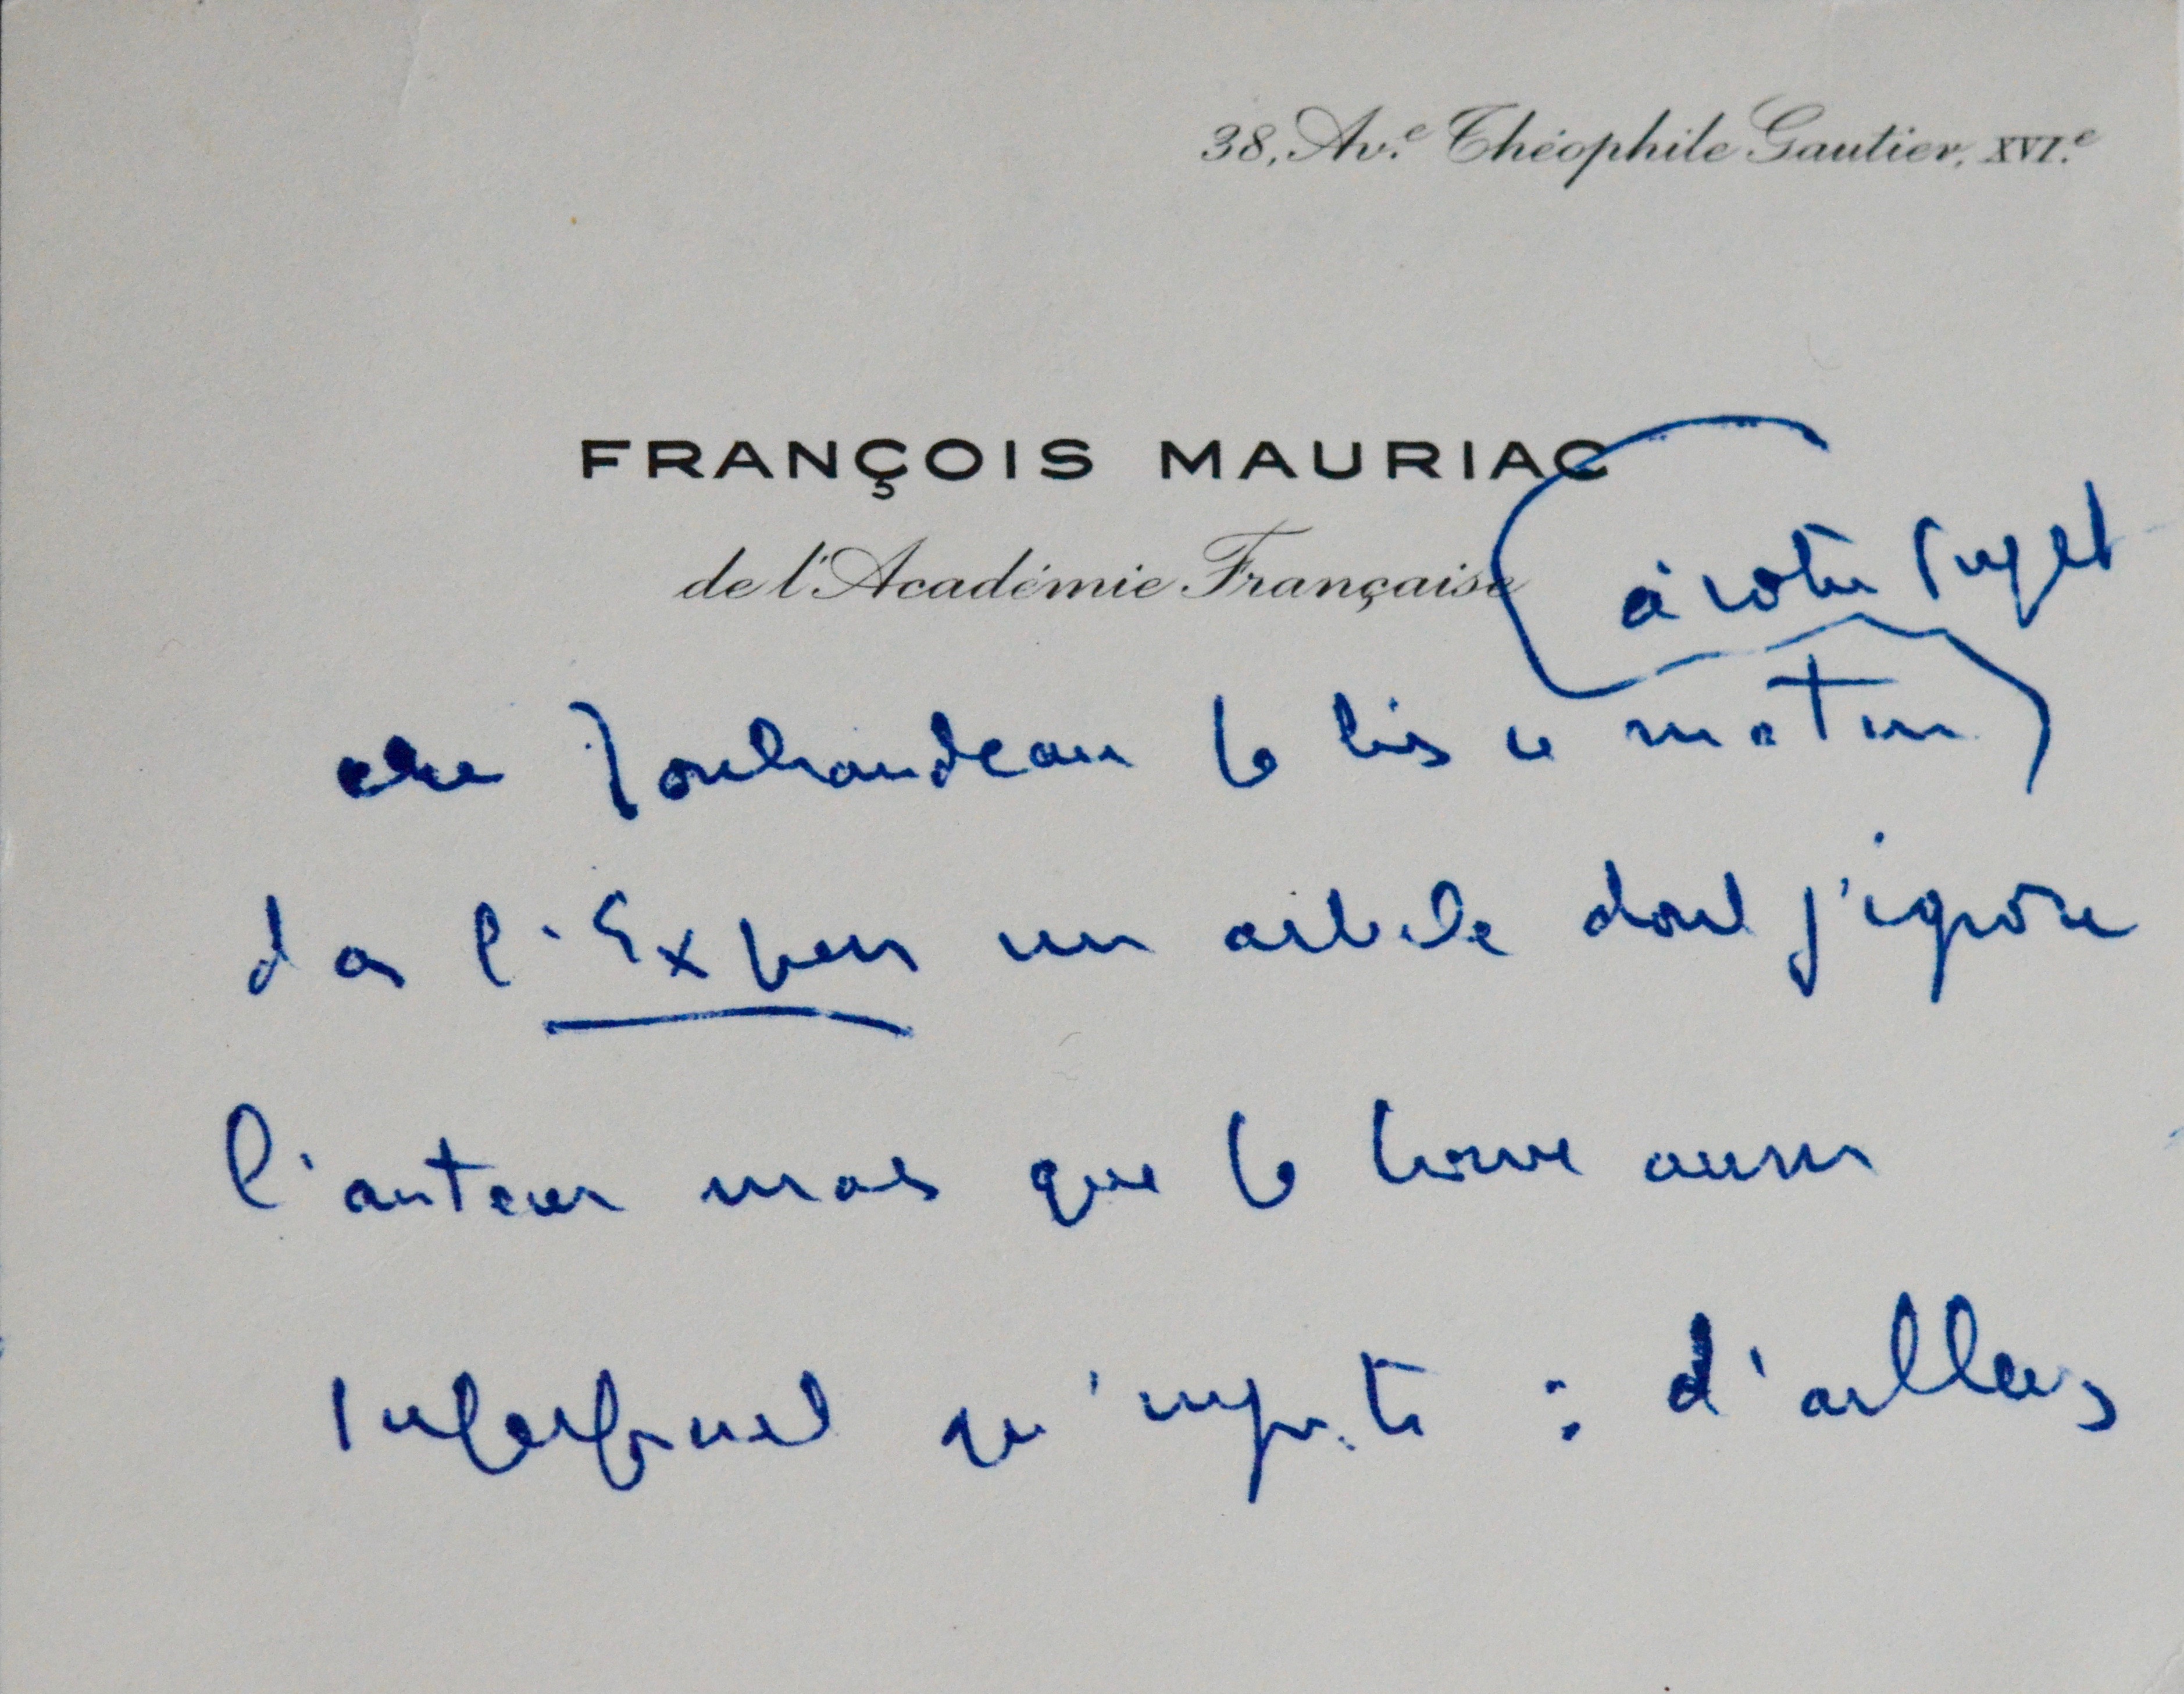 38, Av.e Théophile Gautier, XVI.e
FRANÇOIS MAURIAC
de l'Académie Française
à votre sujet
cher Jouhandeau je lis ce matin
dans l'Express un article dont j'ignore
l'auteur mais que je trouve aussi
superficiel qu'injuste : d'ailleurs